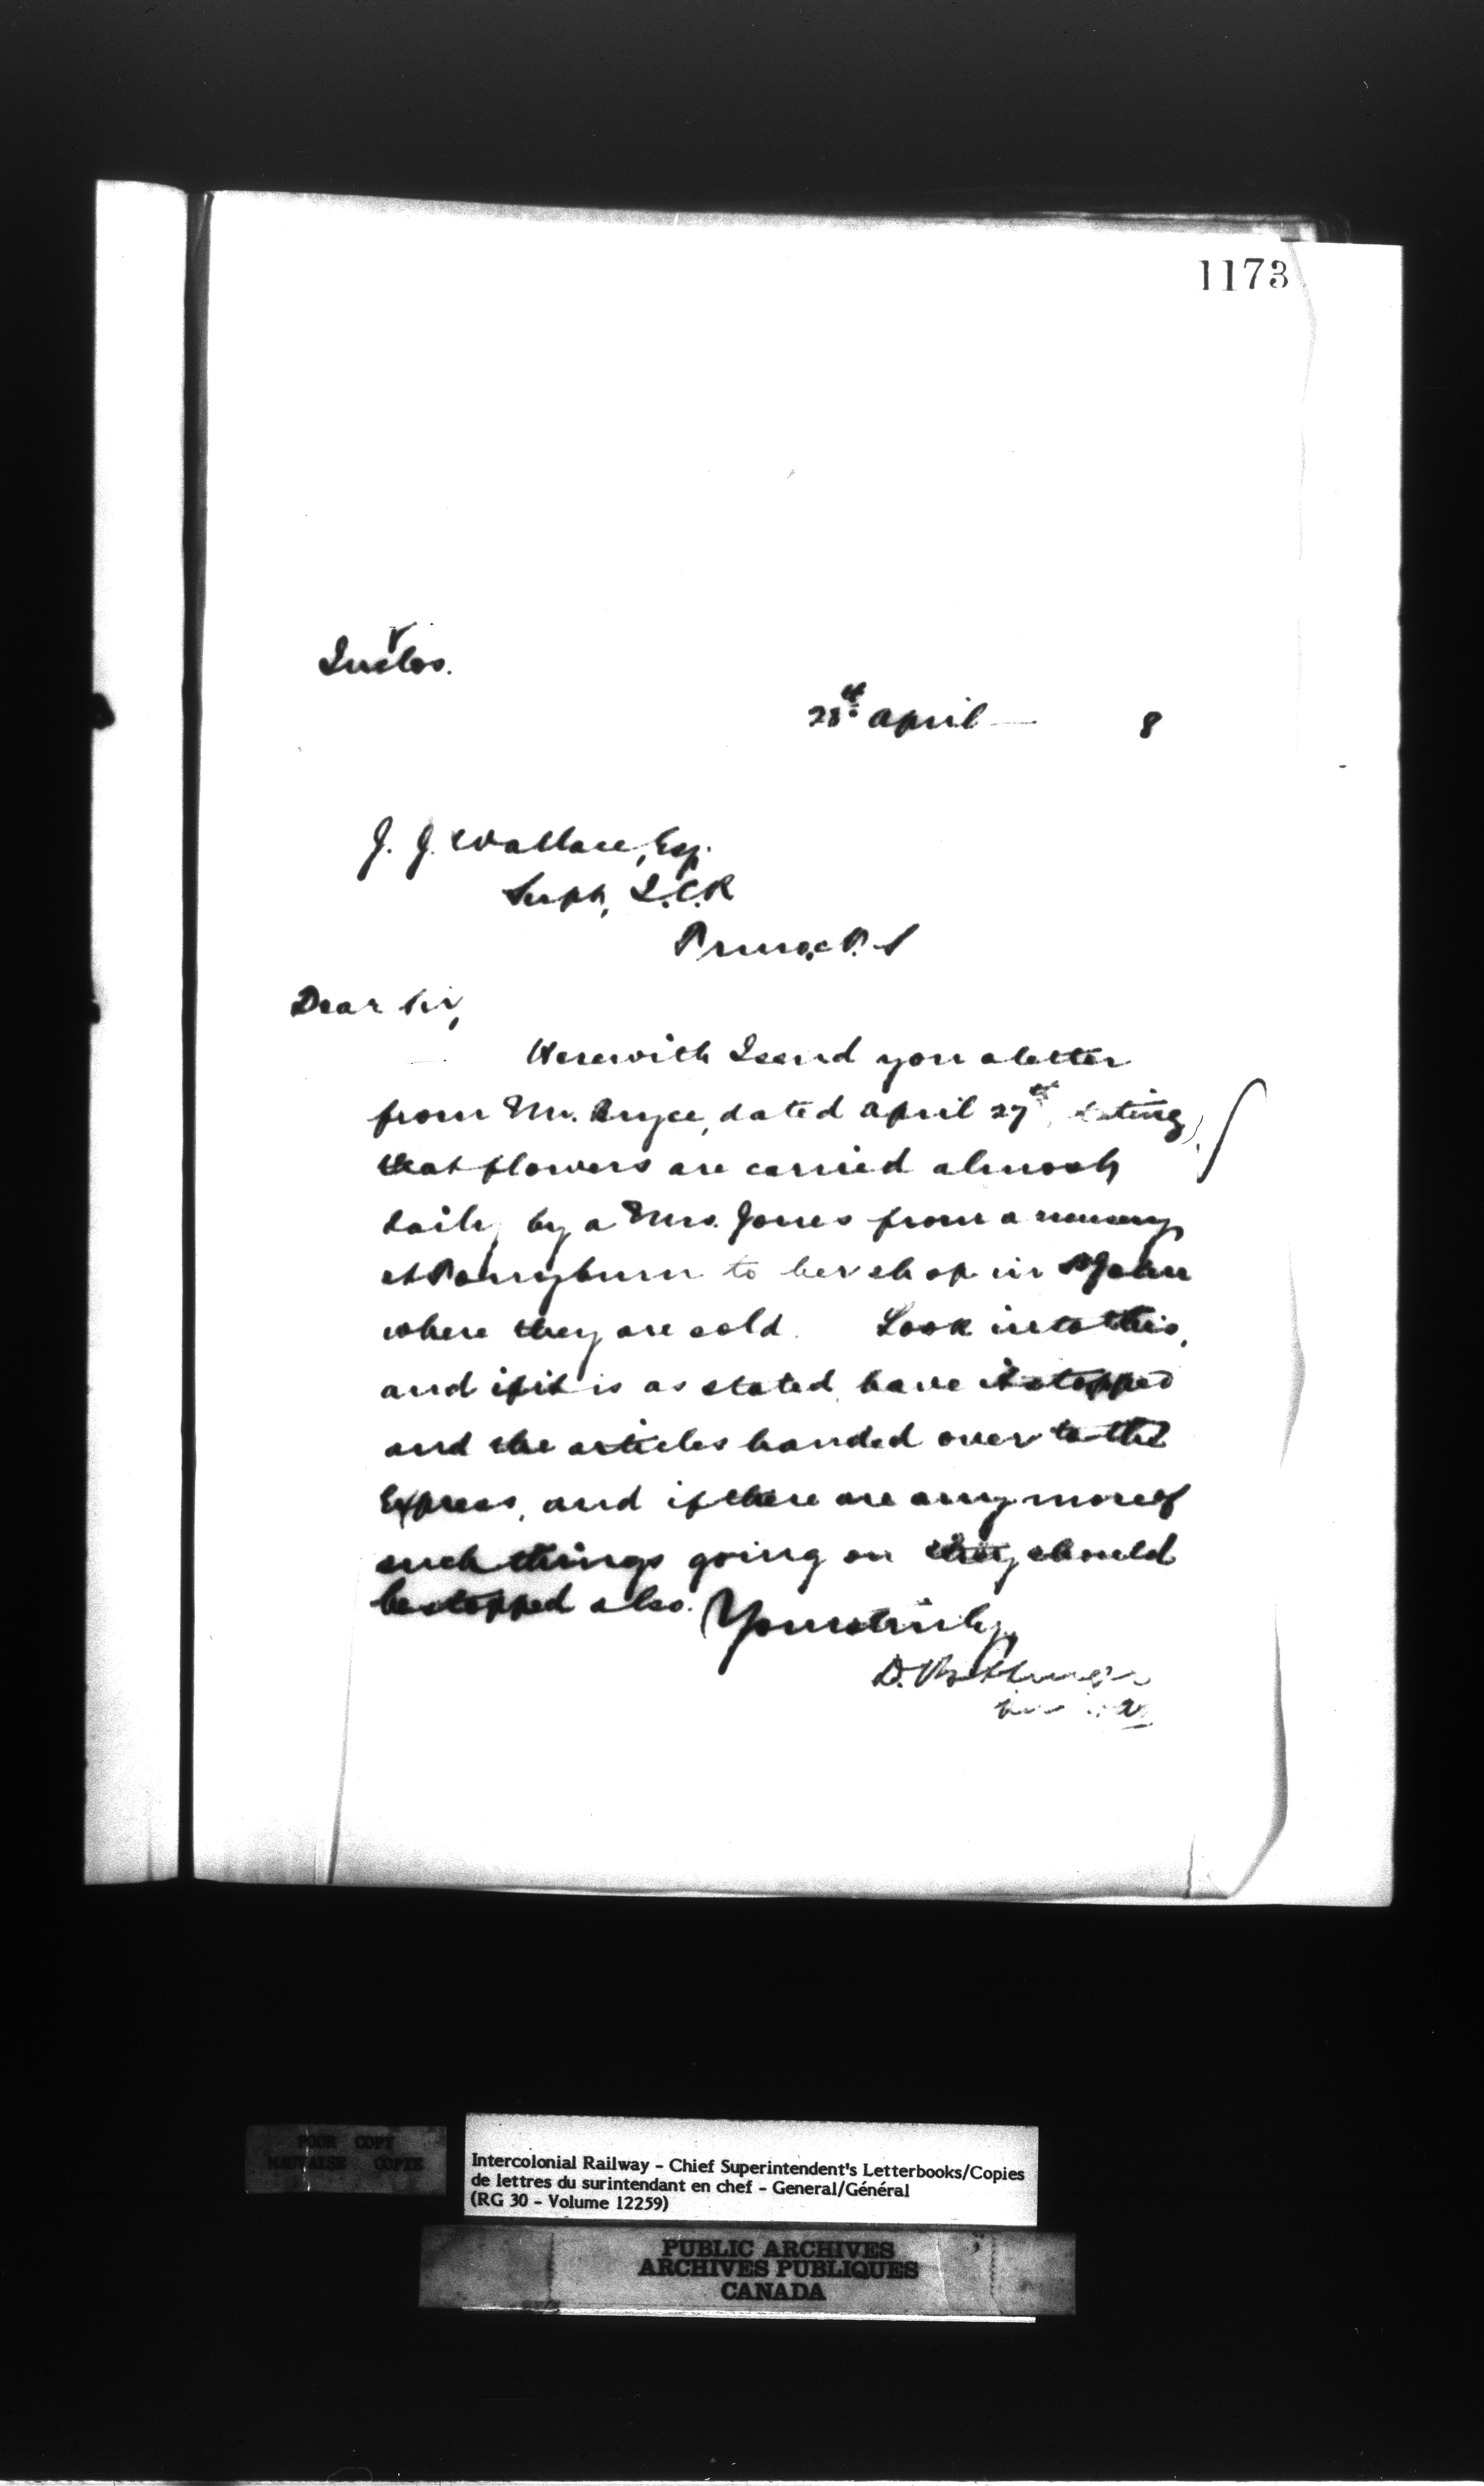 1173
Inclos.
28th April — 8
J. J. Wallace, Esq.
Supt, I.C.R
Dear Sir,
Herewith I send you a letter
from Mr. Bryce, dated April 27th, stating
that flowers are carried almost
daily by a Mrs. Jones from a nursery
at Torryburn to her shop in St John
where they are sold. Look into this,
and if it is as stated have it stopped
and the articles handed over to the
Express, and if there are any more of
such things going on they should
be stopped also. Yours truly,
D. Pottinger
POOR COPY
MAUVAISE COPIE
Intercolonial Railway - Chief Superintendent's Letterbooks/Copies
de lettres du surintendant en chef - General/Général
(RG 30 - Volume 12259)
PUBLIC ARCHIVES
ARCHIVES PUBLIQUES
CANADA